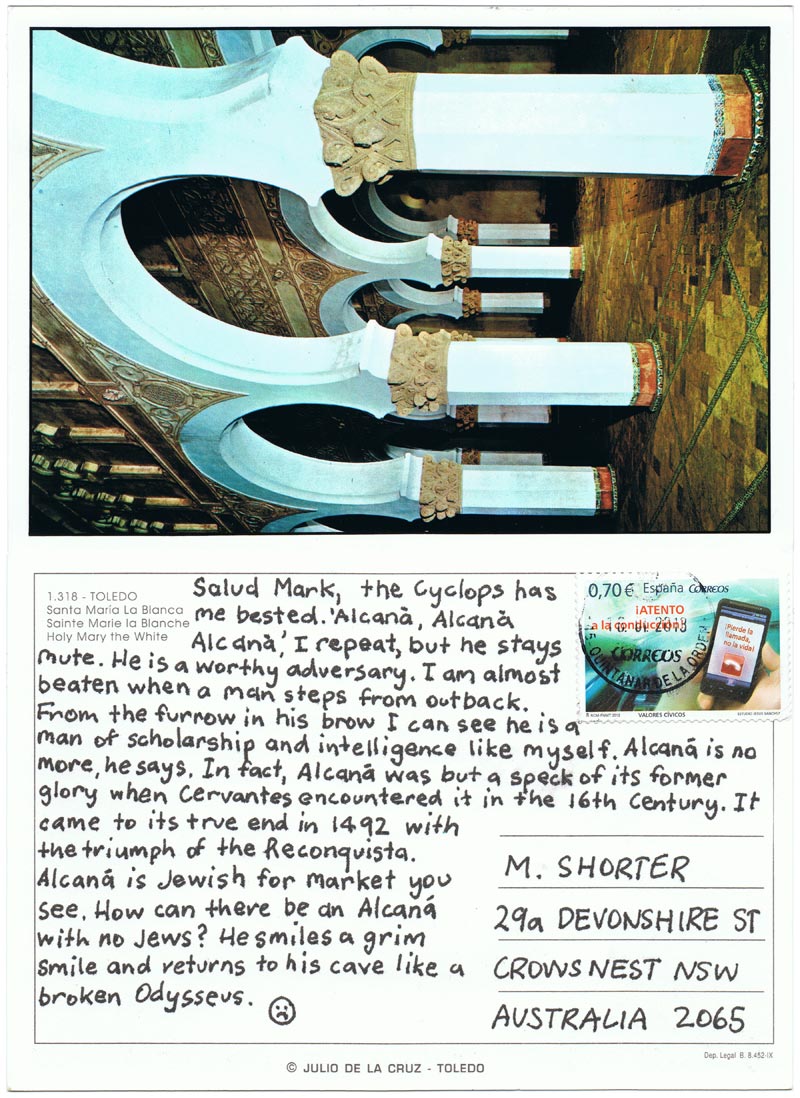 1.318 - TOLEDO
Santa María La Blanca
Sainte Marie la Blanche
Holy Mary the White
Salud Mark, the Cyclops has
me bested. 'Alcanà, Alcanà
Alcanà,' I repeat, but he stays
mute. He is a worthy adversary. I am almost
beaten when a man steps from outback.
From the furrow in his brow I can see he is a
man of scholarship and intelligence like myself. Alcaná is no
more, he says. In fact, Alcaná was but a speck of its former
glory when Cervantes encountered it in the 16th Century. It
came to its true end in 1492 with
the triumph of the Reconquista.
Alcaná is Jewish for market you
see. How can there be an Alcaná
with no Jews? He smiles a grim
smile and returns to his cave like a
broken Odysseus.
0,70 € España CORREOS
¡ATENTO
a la conducción!
CORREOS
QUINTANAR DE LA ORDEN
¡Pierde la
llamada,
no la vida!
VALORES CÍVICOS
M. SHORTER
29a DEVONSHIRE ST
CROWS NEST NSW
AUSTRALIA 2065
Dep. Legal B. 8.452-IX
© JULIO DE LA CRUZ - TOLEDO